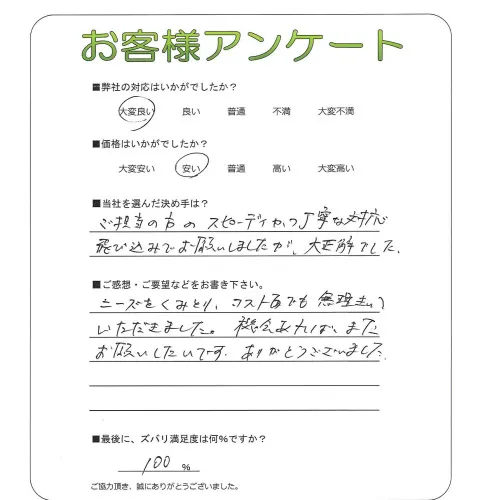 お客様アンケート
■弊社の対応はいかがでしたか？
大変良い 良い 普通 不満 大変不満
■価格はいかがでしたか？
大変安い 安い 普通 高い 大変高い
■当社を選んだ決め手は？
ご担当の方のスピーディかつ丁寧な対応
飛び込みでお願いしましたが、大正解でした。
■ご感想・ご要望などをお書き下さい。
ニーズをくみとり、コスト面でも無理を
いただきました。機会あれば、また
お願いしたいです。ありがとうございました。
■最後に、ズバリ満足度は何%ですか？
100 %
ご協力頂き、誠にありがとうございました。